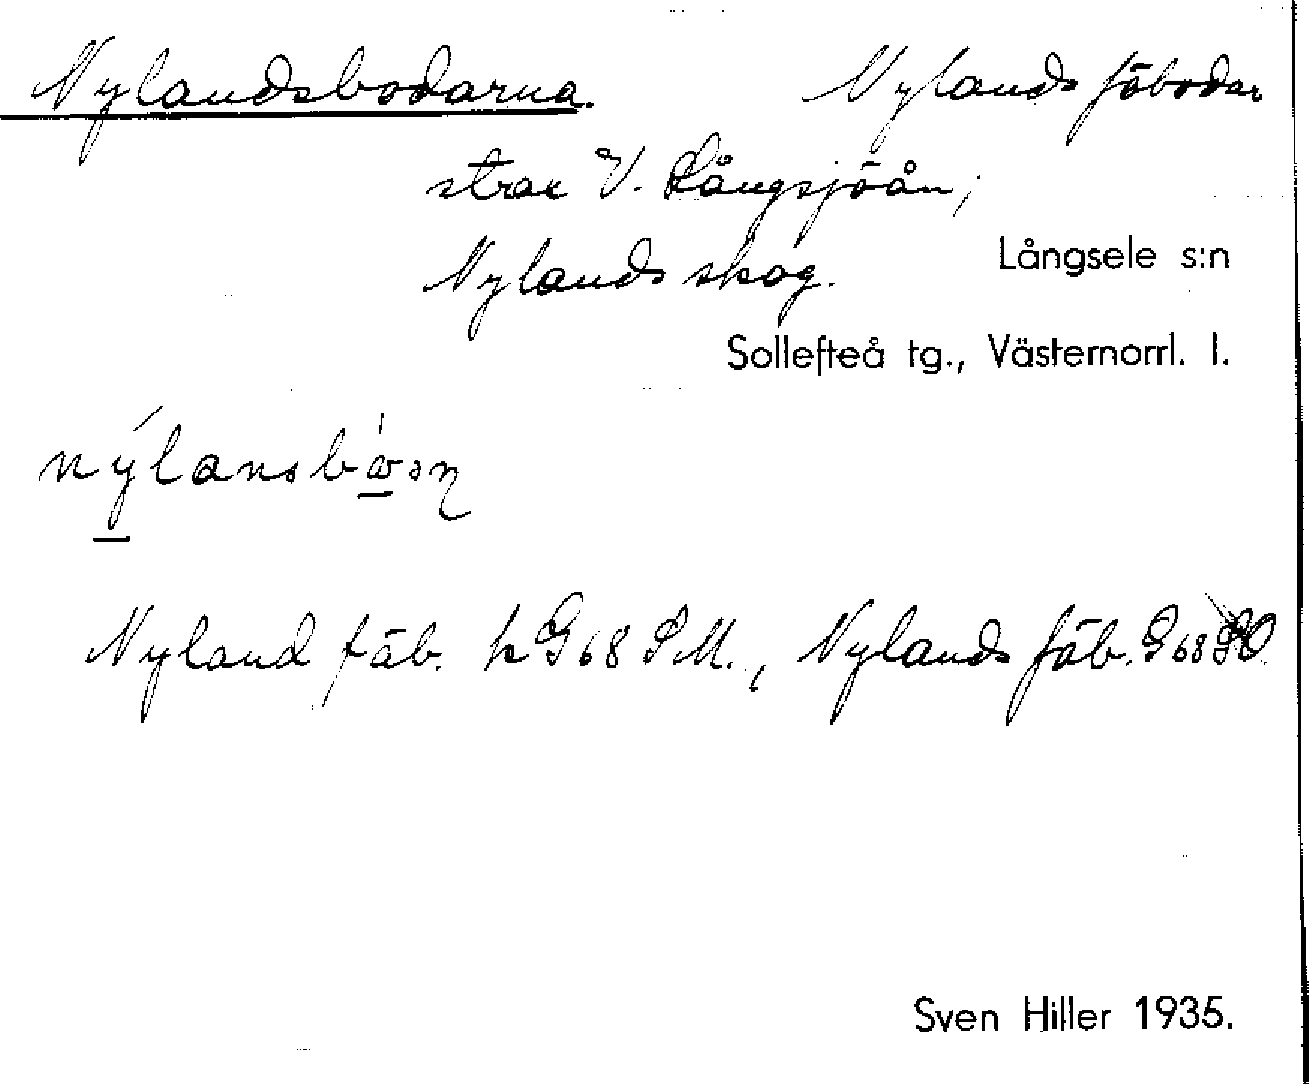 Nylandsbodarna. Nylands fäbodar
strax V. Långsjöån;
Nylands skog. Långsele s:n
Sollefteå tg., Västernorrl. l.
Nyland fäb. k G 68 SM., Nylands fäb. G 68 SO.
Sven Hiller 1935.